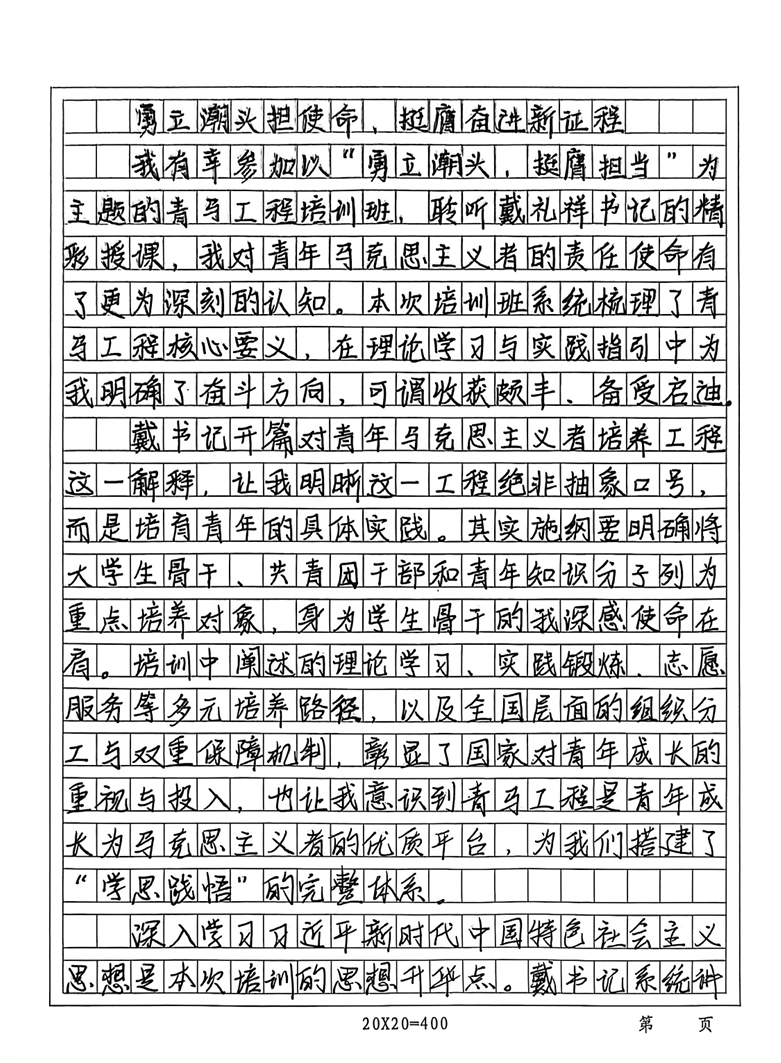 勇立潮头担使命、挺膺奋进新征程
我有幸参加以“勇立潮头，挺膺担当”为
主题的青马工程培训班，聆听戴礼祥书记的精
彩授课，我对青年马克思主义者的责任使命有
了更为深刻的认知。本次培训班系统梳理了青
马工程核心要义，在理论学习与实践指引中为
我明确了奋斗方向，可谓收获颇丰、备受启迪。
戴书记开篇对青年马克思主义者培养工程
这一解释，让我明晰这一工程绝非抽象口号，
而是培育青年的具体实践。其实施纲要明确将
大学生骨干、共青团干部和青年知识分子列为
重点培养对象，身为学生骨干的我深感使命在
肩。培训中阐述的理论学习、实践锻炼、志愿
服务等多元培养路径，以及全国层面的组织分
工与双重保障机制，彰显了国家对青年成长的
重视与投入，也让我意识到青马工程是青年成
长为马克思主义者的优质平台，为我们搭建了
“学思践悟”的完整体系。
深入学习习近平新时代中国特色社会主义
思想是本次培训的思想升华点。戴书记系统讲
20X20=400
第 页